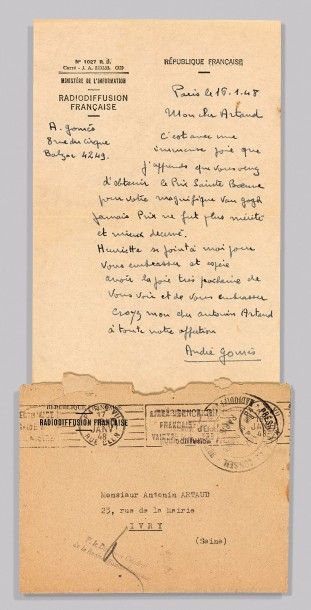 N° 1027 R. d.
MINISTÈRE DE L'INFORMATION
RADIODIFFUSION
FRANÇAISE
A. Gomès
8 rue du Cirque
Balzac 4249.
RÉPUBLIQUE FRANÇAISE
Paris le 16.1.48
Mon cher Artaud
C'est avec une
immense joie que
j'apprends que vous venez
d'obtenir le Prix Sainte Beuve
pour votre magnifique Van Gogh
jamais Prix ne fut plus mérité
et mieux décerné.
Henriette se joint à moi pour
vous embrasser et espère
avoir la joie très prochaine de
vous voir et de vous embrasser
Croyez mon cher Antonin Artaud
à toute notre affection
André Gomès
RÉPUBLIQUE FRANÇAISE
RADIODIFFUSION FRANÇAISE
17
JANV
48
Monsieur Antonin ARTAUD
23, rue de la Mairie
IVRY
(Seine)